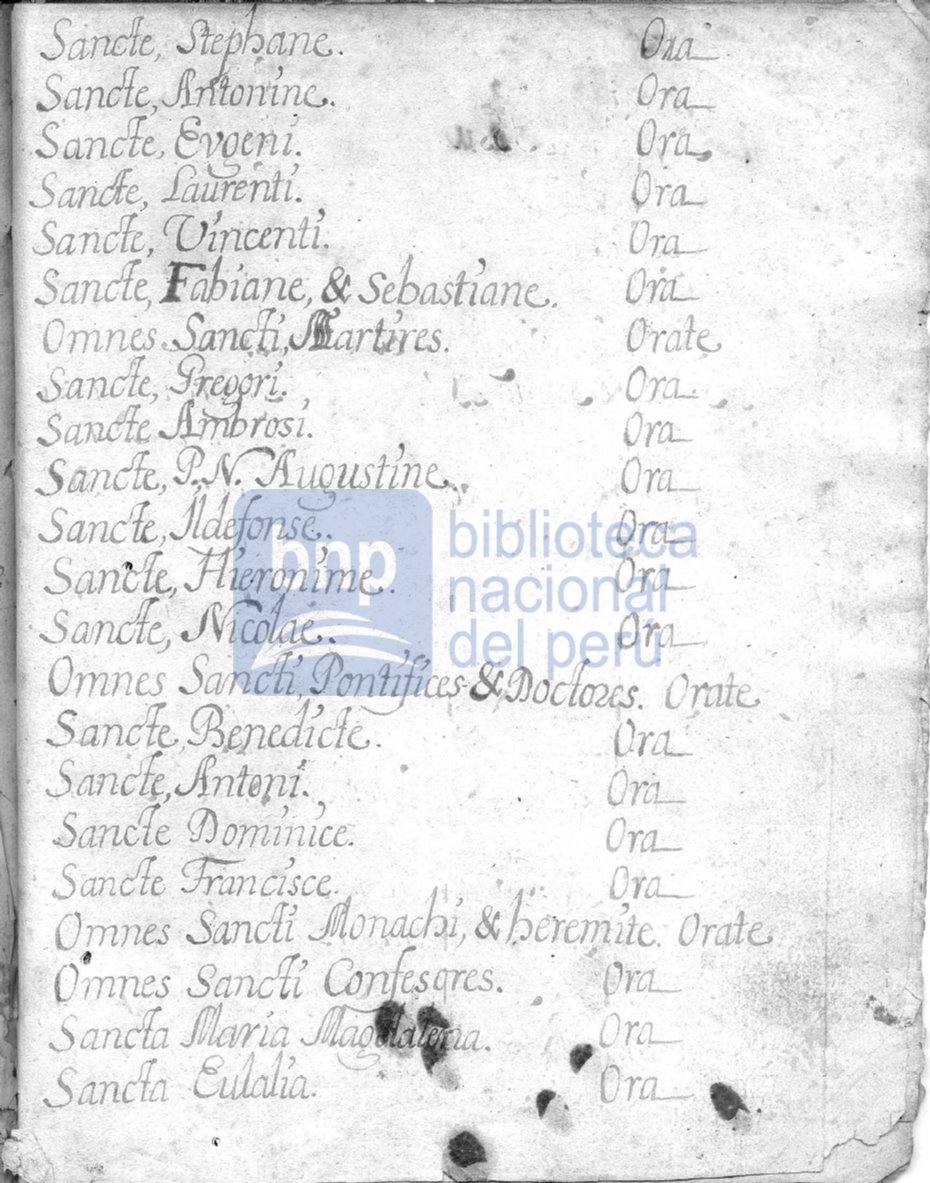 Sancte, Stephane. Ora
Sancte, Antonine. Ora
Sancte, Evgeni. Ora
Sancte, Laurenti. Ora
Sancte, Vincenti. Ora
Sancte, Fabiane, & Sebastiane. Ora
Omnes Sancti, Martires. Orate
Sancte, Gregori. Ora
Sancte Ambrosi. Ora
Sancte, P. N. Augustine. Ora
Sancte, Ildefonse. Ora
Sancte, Hieronime. Ora
Sancte, Nicolae. Ora
Omnes Sancti, Pontifices & Doctores. Orate
Sancte, Benedicte. Ora
Sancte, Antoni. Ora
Sancte Dominice. Ora
Sancte Francisce. Ora
Omnes Sancti Monachi, & heremite. Orate
Omnes Sancti Confesores. Ora
Sancta Maria Magdalena. Ora
Sancta Eulalia. Ora
bnp
biblioteca
nacional
del perú